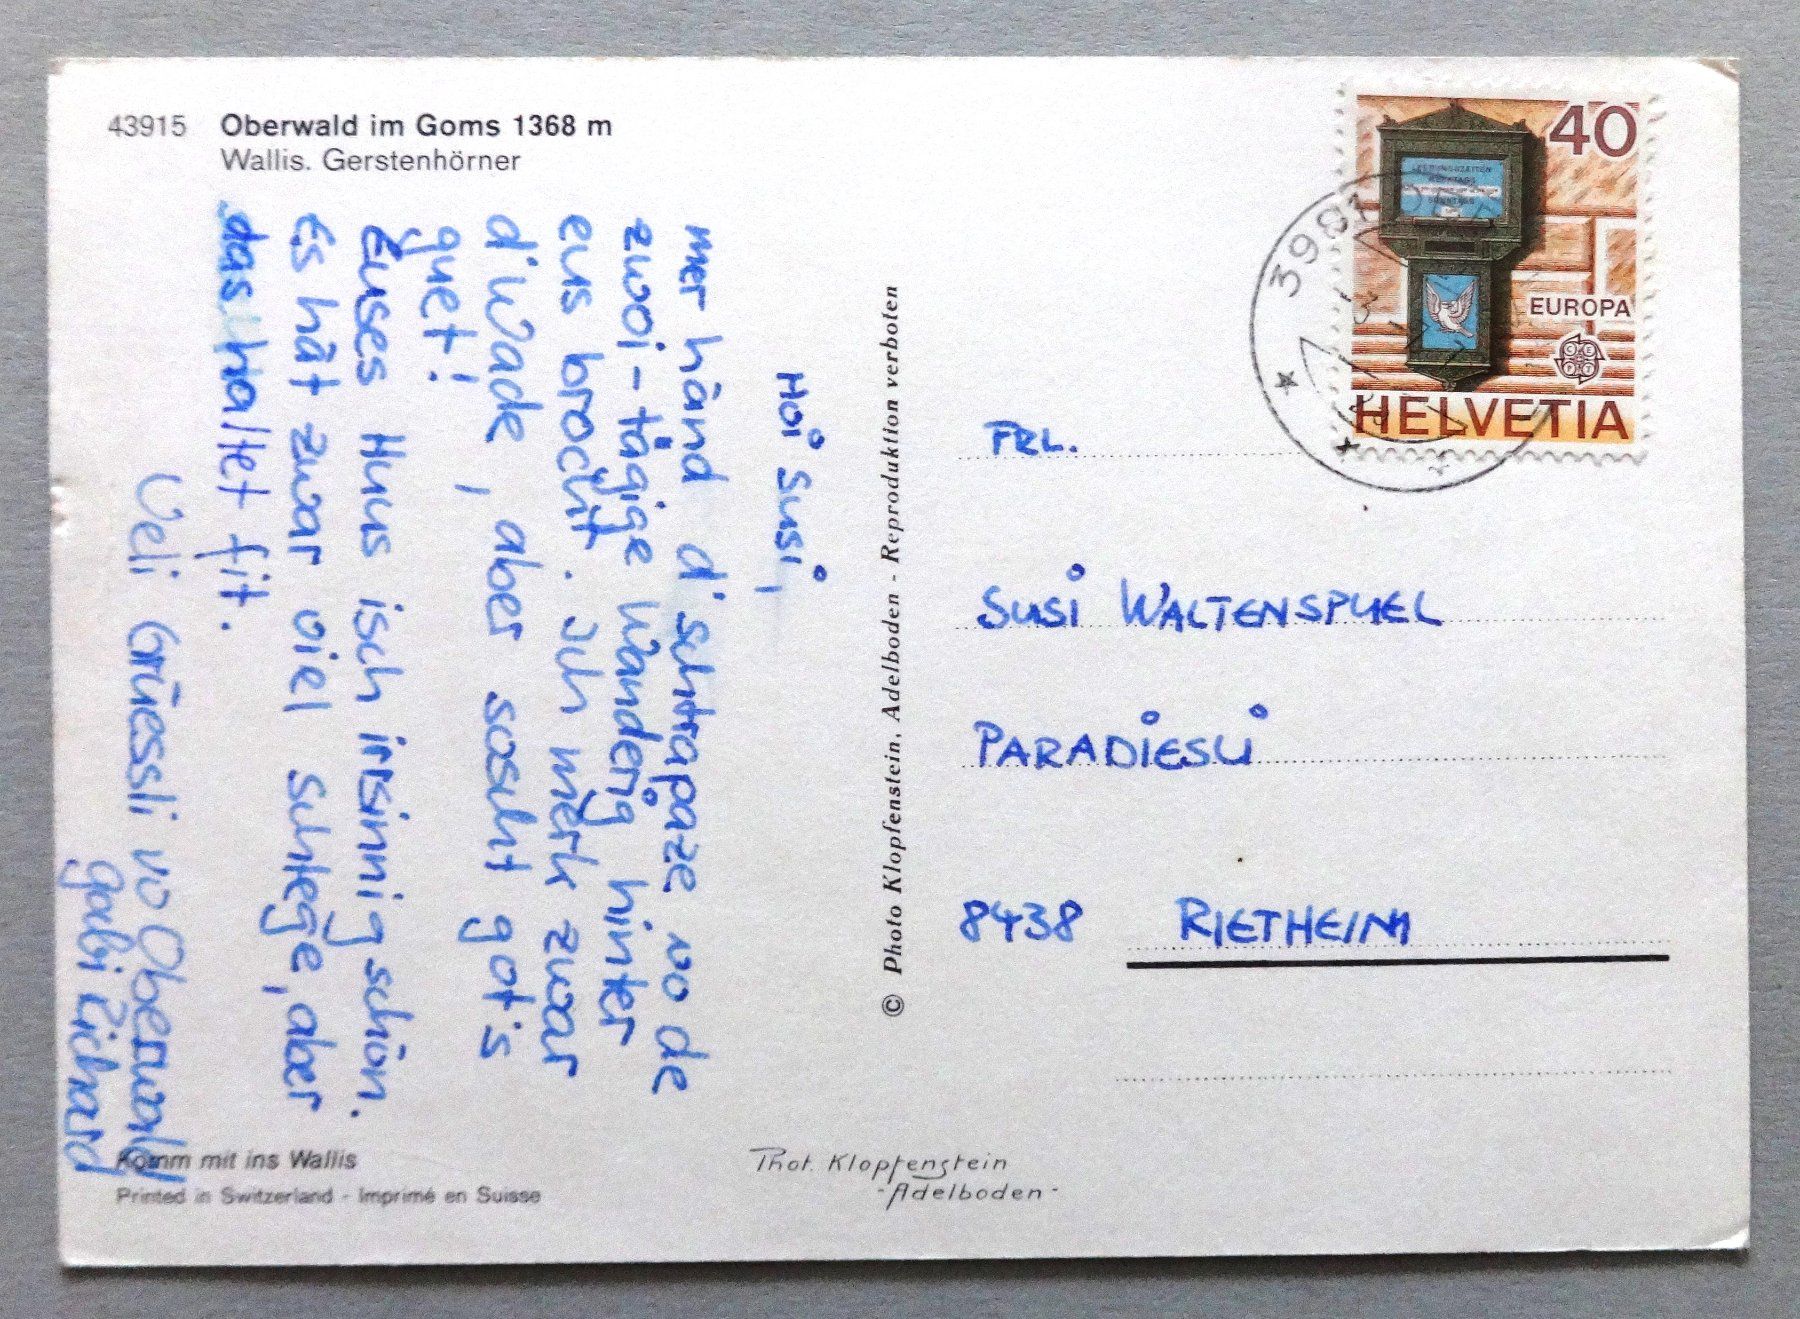 43915 Oberwald im Goms 1368 m
Wallis. Gerstenhörner
Hoi Susi,
mer händ d'Schtrapaze vo de
zwoi-tägige Wanderig hinter
eus brocht. Ich merk zwar
d'Wade, aber soscht got's
guet!
Euses Huus isch irrsinnig schön.
Es hät zwar viel Schtege, aber
das haltet fit.
Veli Grüessli vo Oberwald
gabi Richard
Komm mit ins Wallis
Printed in Switzerland - Imprimé en Suisse
© Photo Klopfenstein, Adelboden - Reproduktion verboten
Phot. Klopfenstein
- Adelboden -
40
EUROPA
HELVETIA
LEERUNGSZEITEN
WERKTAGS
SONNTAGS
3981
FRL.
SUSI WALTENSPUEL
PARADIESLI
8438 RIETHEIM